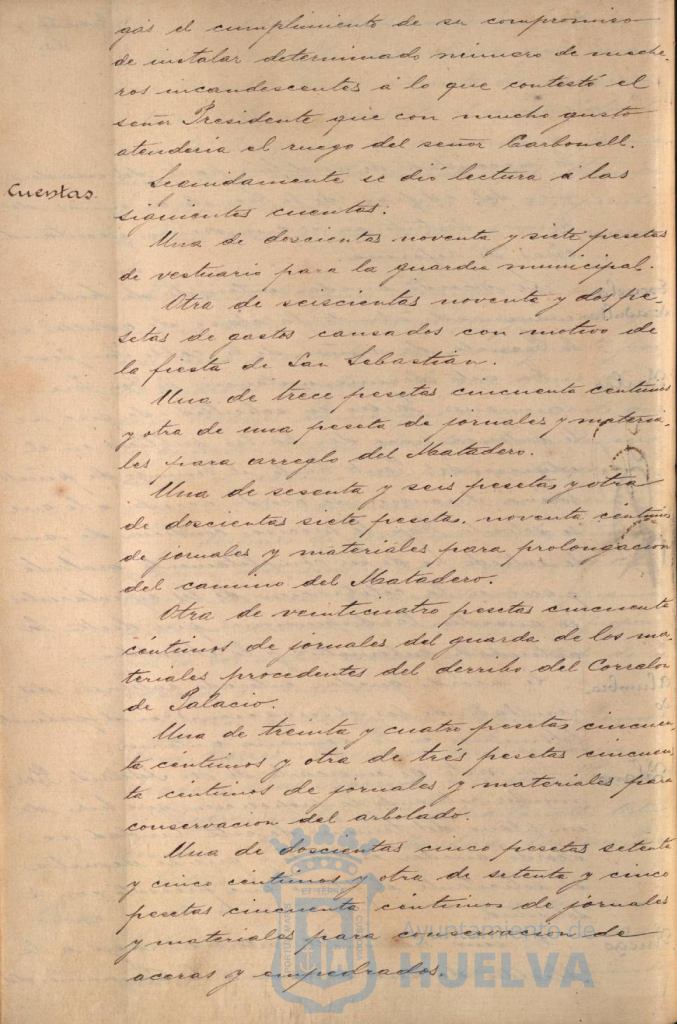 gas el cumplimiento de su compromiso
de instalar determinado número de meche-
ros incandescentes á lo que contestó el
señor Presidente que con mucho gusto
atendería el ruego del señor Carbonell.
Cuentas
Seguidamente se dió lectura á las
siguientes cuentas:
Una de doscientas noventa y siete pesetas
de vestuario para la guardia municipal.
Otra de seiscientas noventa y dos pe-
setas de gastos causados con motivo de
la fiesta de San Sebastián.
Una de trece pesetas cincuenta centimos
y otra de una peseta de jornales y materia-
les para arreglo del Matadero.
Una de sesenta y seis pesetas y otra
de doscientas siete pesetas noventa céntimos
de jornales y materiales para prolongacion
del camino del Matadero.
Otra de veinticuatro pesetas cincuenta
céntimos de jornales del guarda de los ma-
teriales procedentes del derribo del Corralon
de Palacio.
Una de treinta y cuatro pesetas cincuen-
ta céntimos y otra de trés pesetas cincuen
ta céntimos de jornales y materiales para
conservacion del arbolado.
Una de doscientas cinco pesetas setenta
y cinco céntimos y otra de setenta y cinco
pesetas cincuenta céntimos de jornales
y materiales para conservación de
aceras y empedrados.
Ayuntamiento de
HUELVA